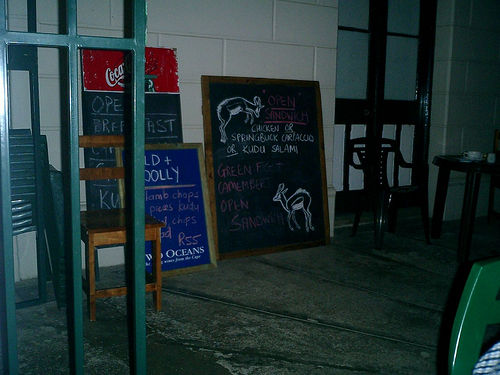 Coca
OPE
BRE AST
KU
LD +
OOLLY
lamb chops
pices kudu
chips
R55
OCEANS
OPEN
SANDWICH
CHICKEN OR
SPRINGBUCK CARPACCIO
OR KUDU SALAMI
GREEN F
CAMEMBERT
OPEN
SANDWICH